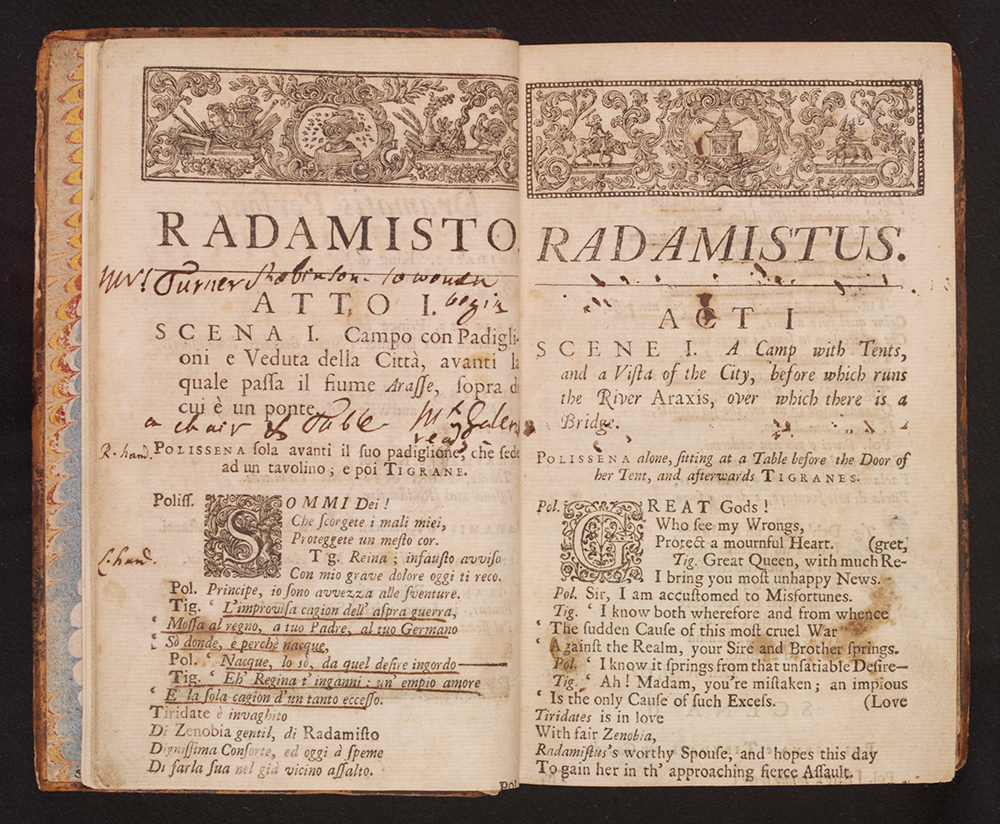 RADAMISTO.
Mrs. Turner Robinson to women
ATTO I. begin
SCENA I. Campo con Padigli-
oni e Veduta della Città, avanti la
quale paſſa il fiume Araſſe, ſopra di
cui è un ponte.
a chair & Table Mr
ready
R. hand. POLISSENA ſola avanti il ſuo padiglione, che ſede
ad un tavolino; e poi TIGRANE.
Poliſſ. SOMMI Dei!
Che ſcorgete i mali miei,
Proteggete un meſto cor.
T g. Reina; infauſto avviſo
L. hand. Con mio grave dolore oggi ti reco.
Pol. Principe, io ſono avvezza alle ſventure.
Tig. ‘ L'improviſa cagion dell' aſpra guerra,
‘ Moſſa al regno, a tuo Padre, al tuo Germano
‘ Sò donde, e perchè nacque,
Pol. ‘ Nacque, lo sò, da quel deſire ingordo——
Tig. ‘ Eh' Regina t'inganni: un' empio amore
‘ E la ſola cagion d'un tanto ecceſſo.
Tiridate è invaghito
Di Zenobia gentil, di Radamiſto
Digniſſima Conſorte, ed oggi à ſpeme
Di farla ſua nel già vicino aſſalto.
Pol
RADAMISTUS.
ACT I
SCENE I. A Camp with Tents,
and a Viſta of the City, before which runs
the River Araxis, over which there is a
Bridge.
POLISSENA alone, ſitting at a Table before the Door of
her Tent, and afterwards TIGRANES.
Pol. GREAT Gods!
Who ſee my Wrongs,
Protect a mournful Heart. (gret,
Tig. Great Queen, with much Re-
I bring you moſt unhappy News.
Pol. Sir, I am accuſtomed to Misfortunes.
Tig. ‘ I know both wherefore and from whence
‘ The ſudden Cauſe of this moſt cruel War
‘ Againſt the Realm, your Sire and Brother ſprings.
Pol. ‘ I know it ſprings from that unſatiable Deſire—
Tig. ‘ Ah! Madam, you're miſtaken; an impious
‘ Is the only Cauſe of ſuch Exceſs. (Love
Tiridates is in love
With fair Zenobia,
Radamiſtus's worthy Spouſe, and hopes this day
To gain her in th' approaching fierce Aſſault.